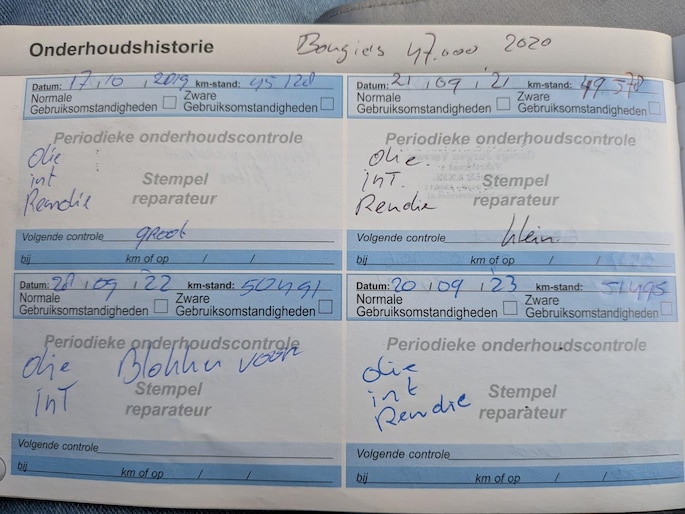 Onderhoudshistorie Bougies 47.000 2020
Datum: 17 / 10 / 2019 km-stand: 45128
Normale Gebruiksomstandigheden Zware Gebruiksomstandigheden
Periodieke onderhoudscontrole
Olie
int
Remdie
Stempel
reparateur
Volgende controle groot
bij km of op / /
Datum: 21 / 09 / 21 km-stand: 49578
Normale Gebruiksomstandigheden Zware Gebruiksomstandigheden
Periodieke onderhoudscontrole
Olie.
InT.
Remdie
Stempel
reparateur
Volgende controle klein
bij km of op / /
Datum: 20 / 09 / 22 km-stand: 50491
Normale Gebruiksomstandigheden Zware Gebruiksomstandigheden
Periodieke onderhoudscontrole
Olie Blokken voor
InT
Stempel
reparateur
Volgende controle
bij km of op / /
Datum: 20 / 09 / 23 km-stand: 51495
Normale Gebruiksomstandigheden Zware Gebruiksomstandigheden
Periodieke onderhoudscontrole
Olie
int
Remdie
Stempel
reparateur
Volgende controle
bij km of op / /